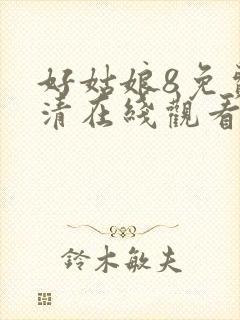 好姑娘8免費
清在綫觀看
鈴木敏夫